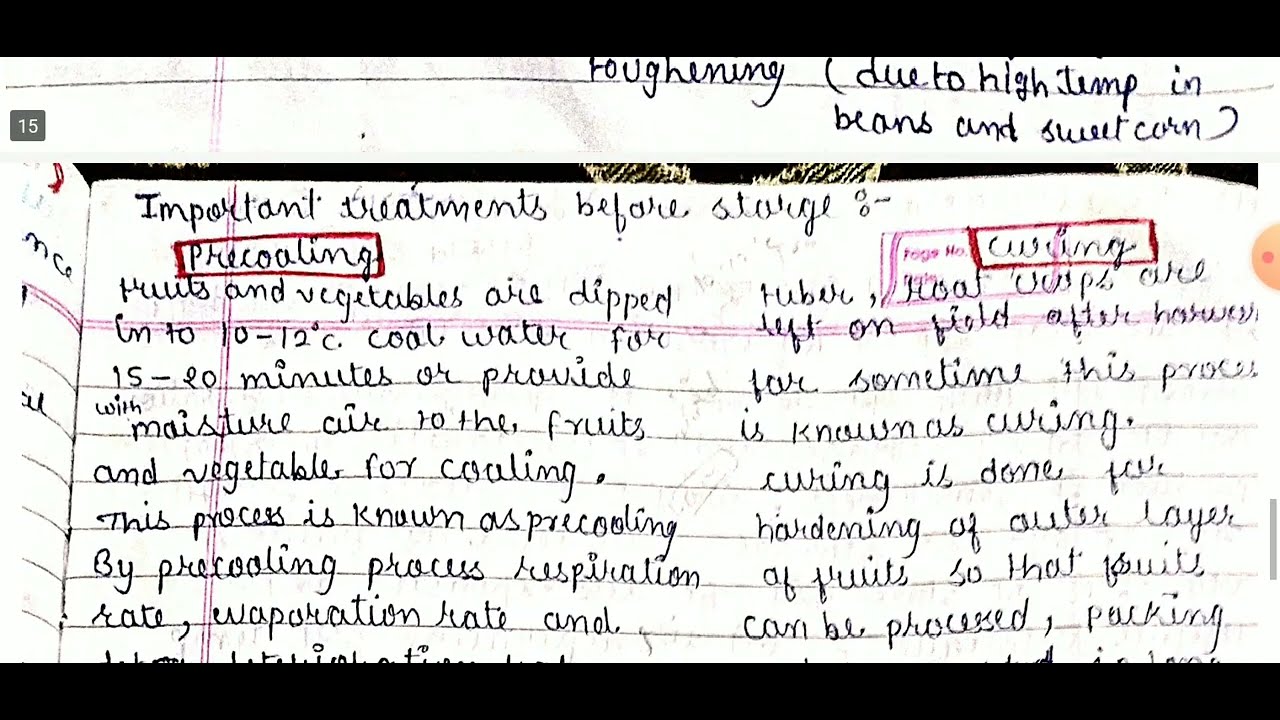 roughening (due to high temp in
beans and sweet corn)
15
Important treatments before storge :-
Precoaling
fruits and vegetables are dipped
in to 10-12°c coal water for
15-20 minutes or provide
with
maisture air to the fruits
and vegetable for coaling.
This process is known as precooling
By precooling process respiration
rate, evaporation rate and
Page No.
curing
tuber, root crops are
left on field after harves
for sometime this proces
is known as curing.
curing is done for
hardening of outer layer
of fruits so that fruits
can be processed, packing